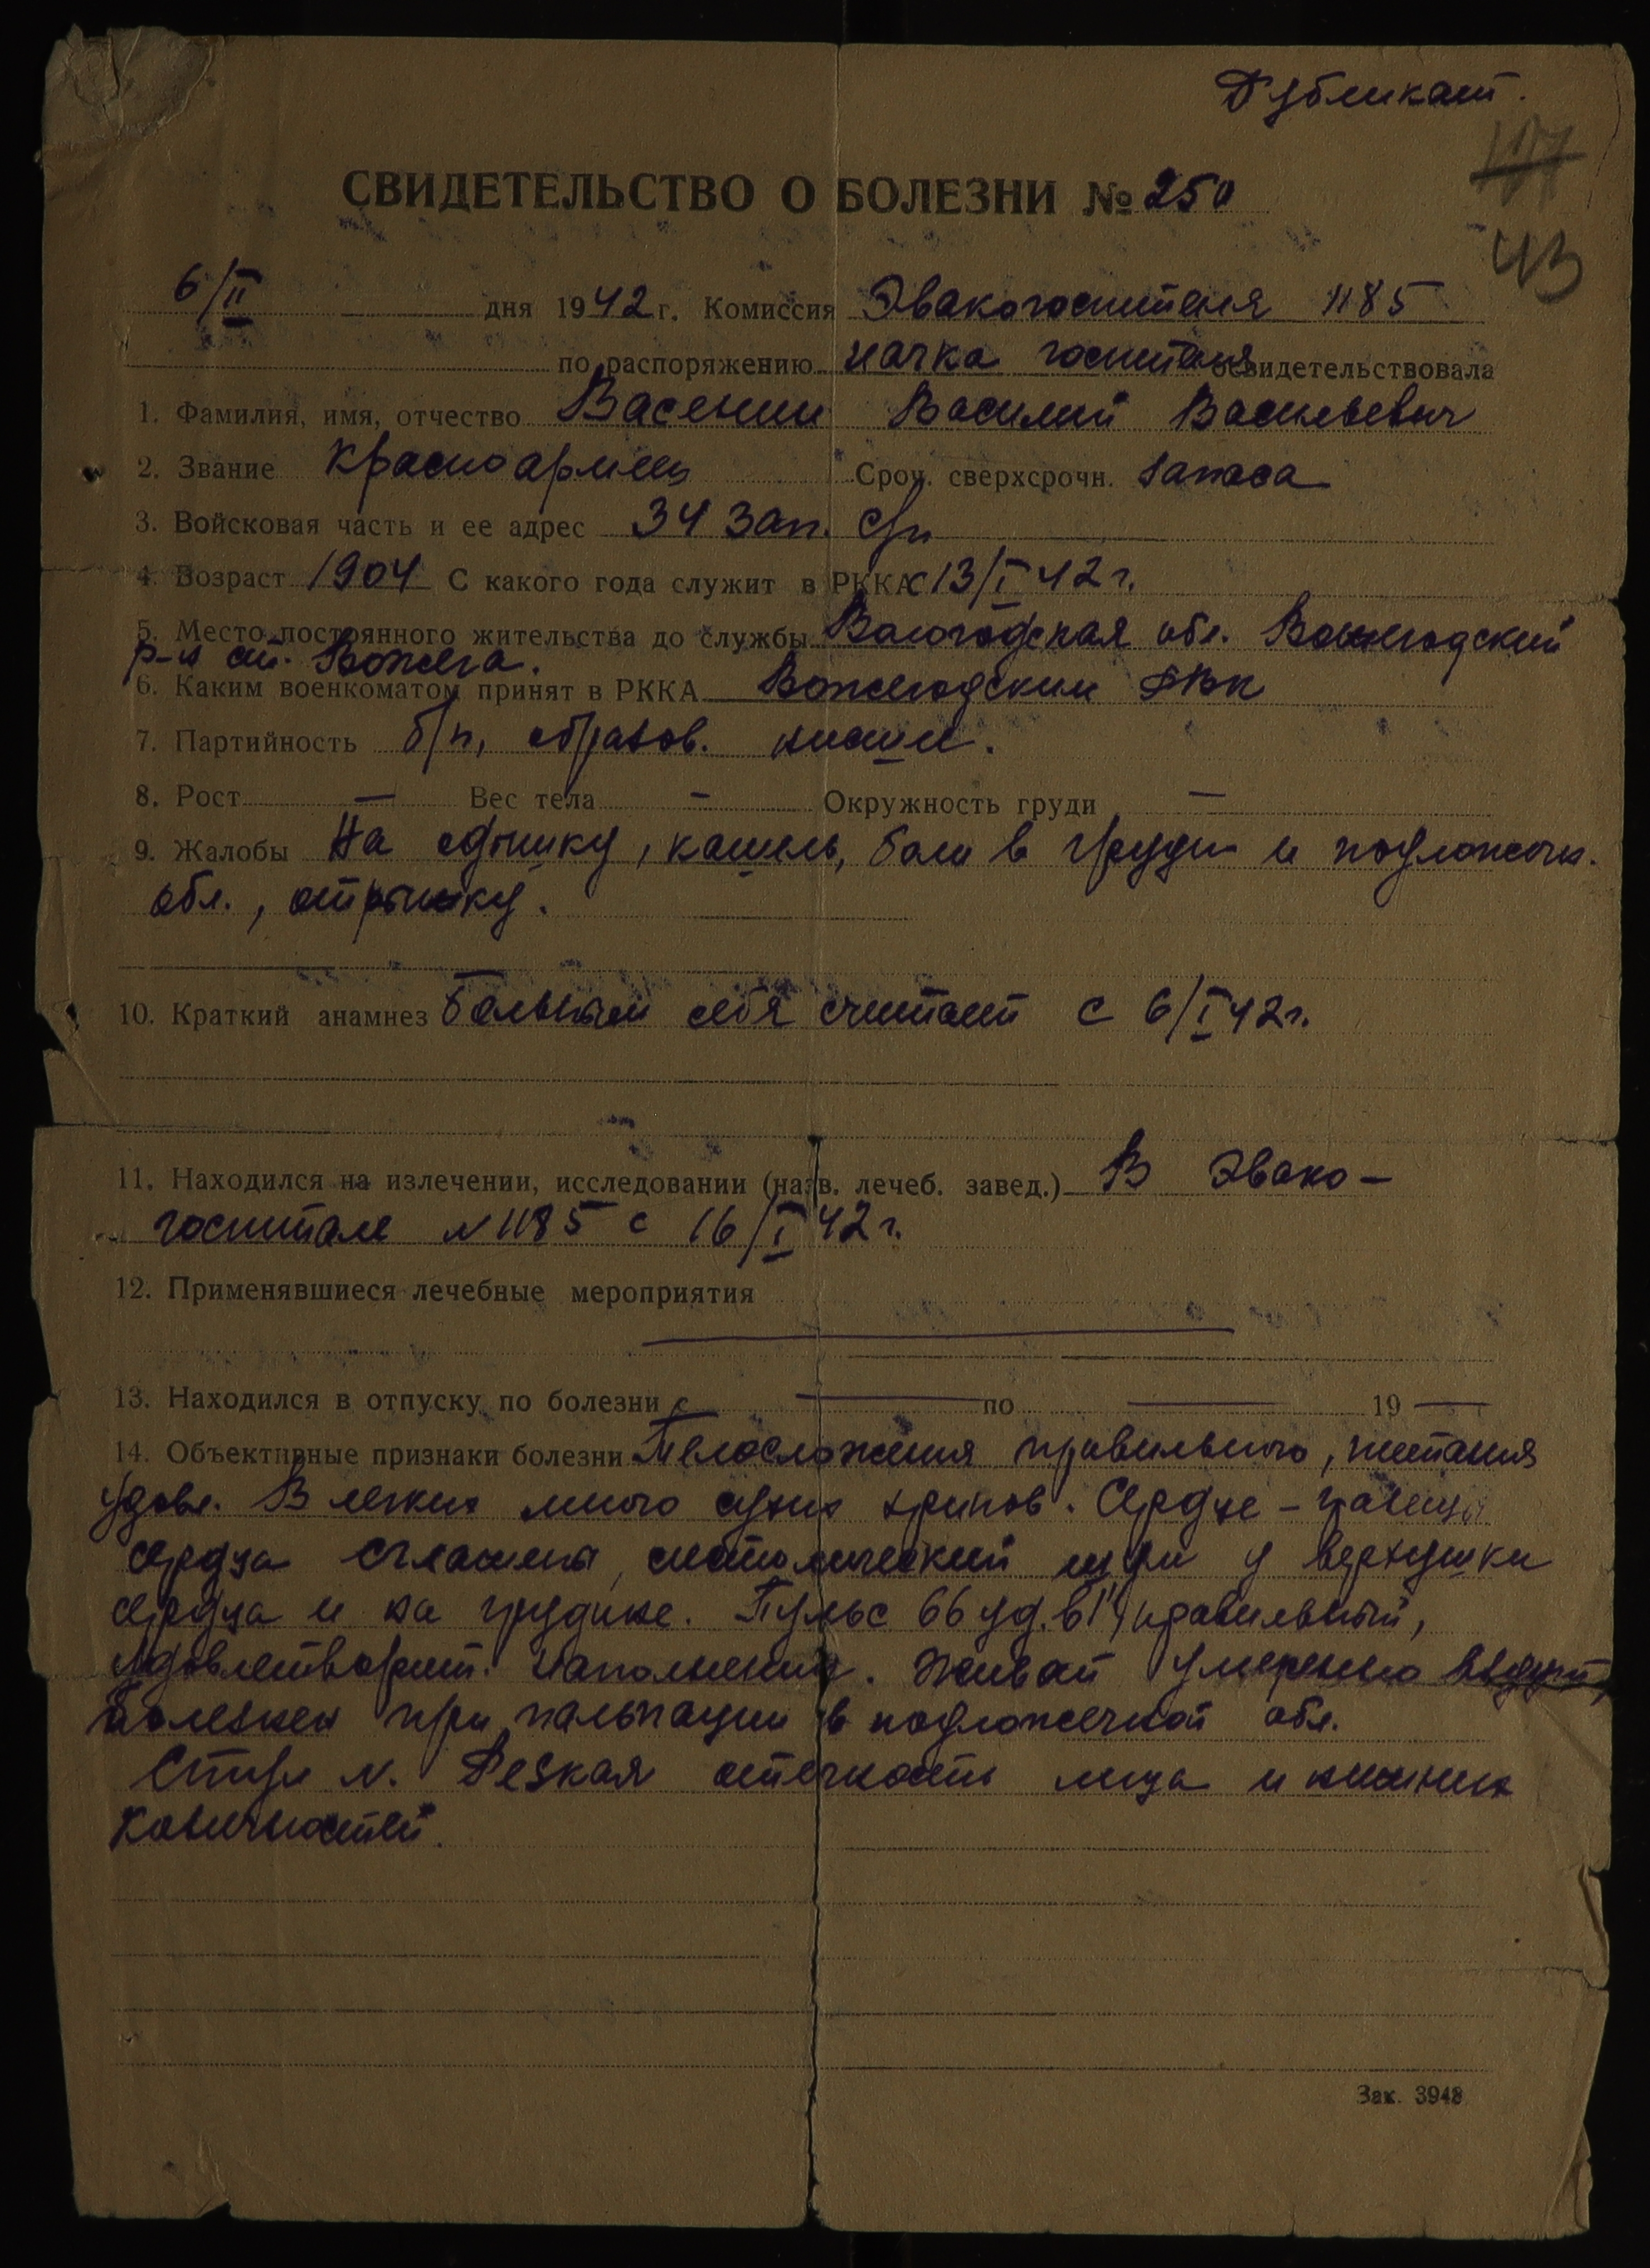 Дубликат.
177
43
СВИДЕТЕЛЬСТВО О БОЛЕЗНИ № 250
6/II дня 1942 г. Комиссия Эвакогоспиталя 1185
по распоряжению начка госпиталя свидетельствовала
1. Фамилия, имя, отчество Васенин Василий Васильевич
2. Звание красноармеец Сроч. сверхсрочн. запаса
3. Войсковая часть и ее адрес 34 зап. сп
4. Возраст 1904 С какого года служит в РККА с 13/I 42 г.
5. Место постоянного жительства до службы Вологодская обл. Вожегодский
р-н ст. Вожега.
6. Каким военкоматом принят в РККА Вожегодским РВК
7. Партийность б/п, образов. низшее.
8. Рост — Вес тела — Окружность груди —
9. Жалобы На одышку, кашель, боли в груди и подложечн.
обл., отрыжку.
10. Краткий анамнез Больным себя считает с 6/I 42 г.
11. Находился на излечении, исследовании (назв. лечеб. завед.) В Эвако-
госпитале N 1185 с 16/I 42 г.
12. Применявшиеся лечебные мероприятия
13. Находился в отпуску по болезни с — по — 19 —
14. Объективные признаки болезни Телосложения правильного, питания
удовл. В легких много сухих хрипов. Сердце – границы
сердца сглажены, систолический шум у верхушки
сердца и на грудине. Пульс 66 уд. в 1', правильный,
удовлетворит. наполнения. Живот умеренно вздут,
болезнен при пальпации в подложечной обл.
Стул N. Резкая отечность лица и нижних
конечностей.
Зак. 3948